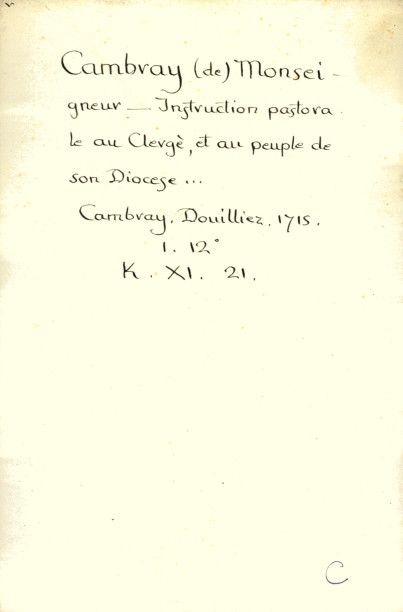 Cambray (de) Monsei-
gneur — Instruction pastora
le au Clergè, et au peuple de
son Diocese ...
Cambray. Douilliez. 1715.
1. 12°
K. XI. 21.
C